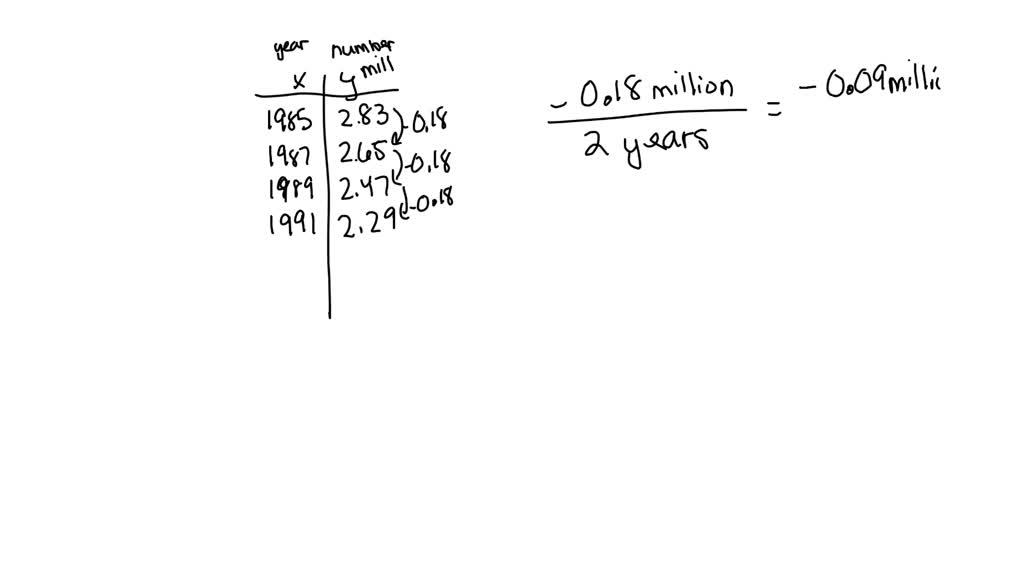 year number
x y mill
1985 2.83 -0.18
1987 2.65 -0.18
1989 2.47 -0.18
1991 2.29
- 0.18 million
2 years
= - 0.09 milli